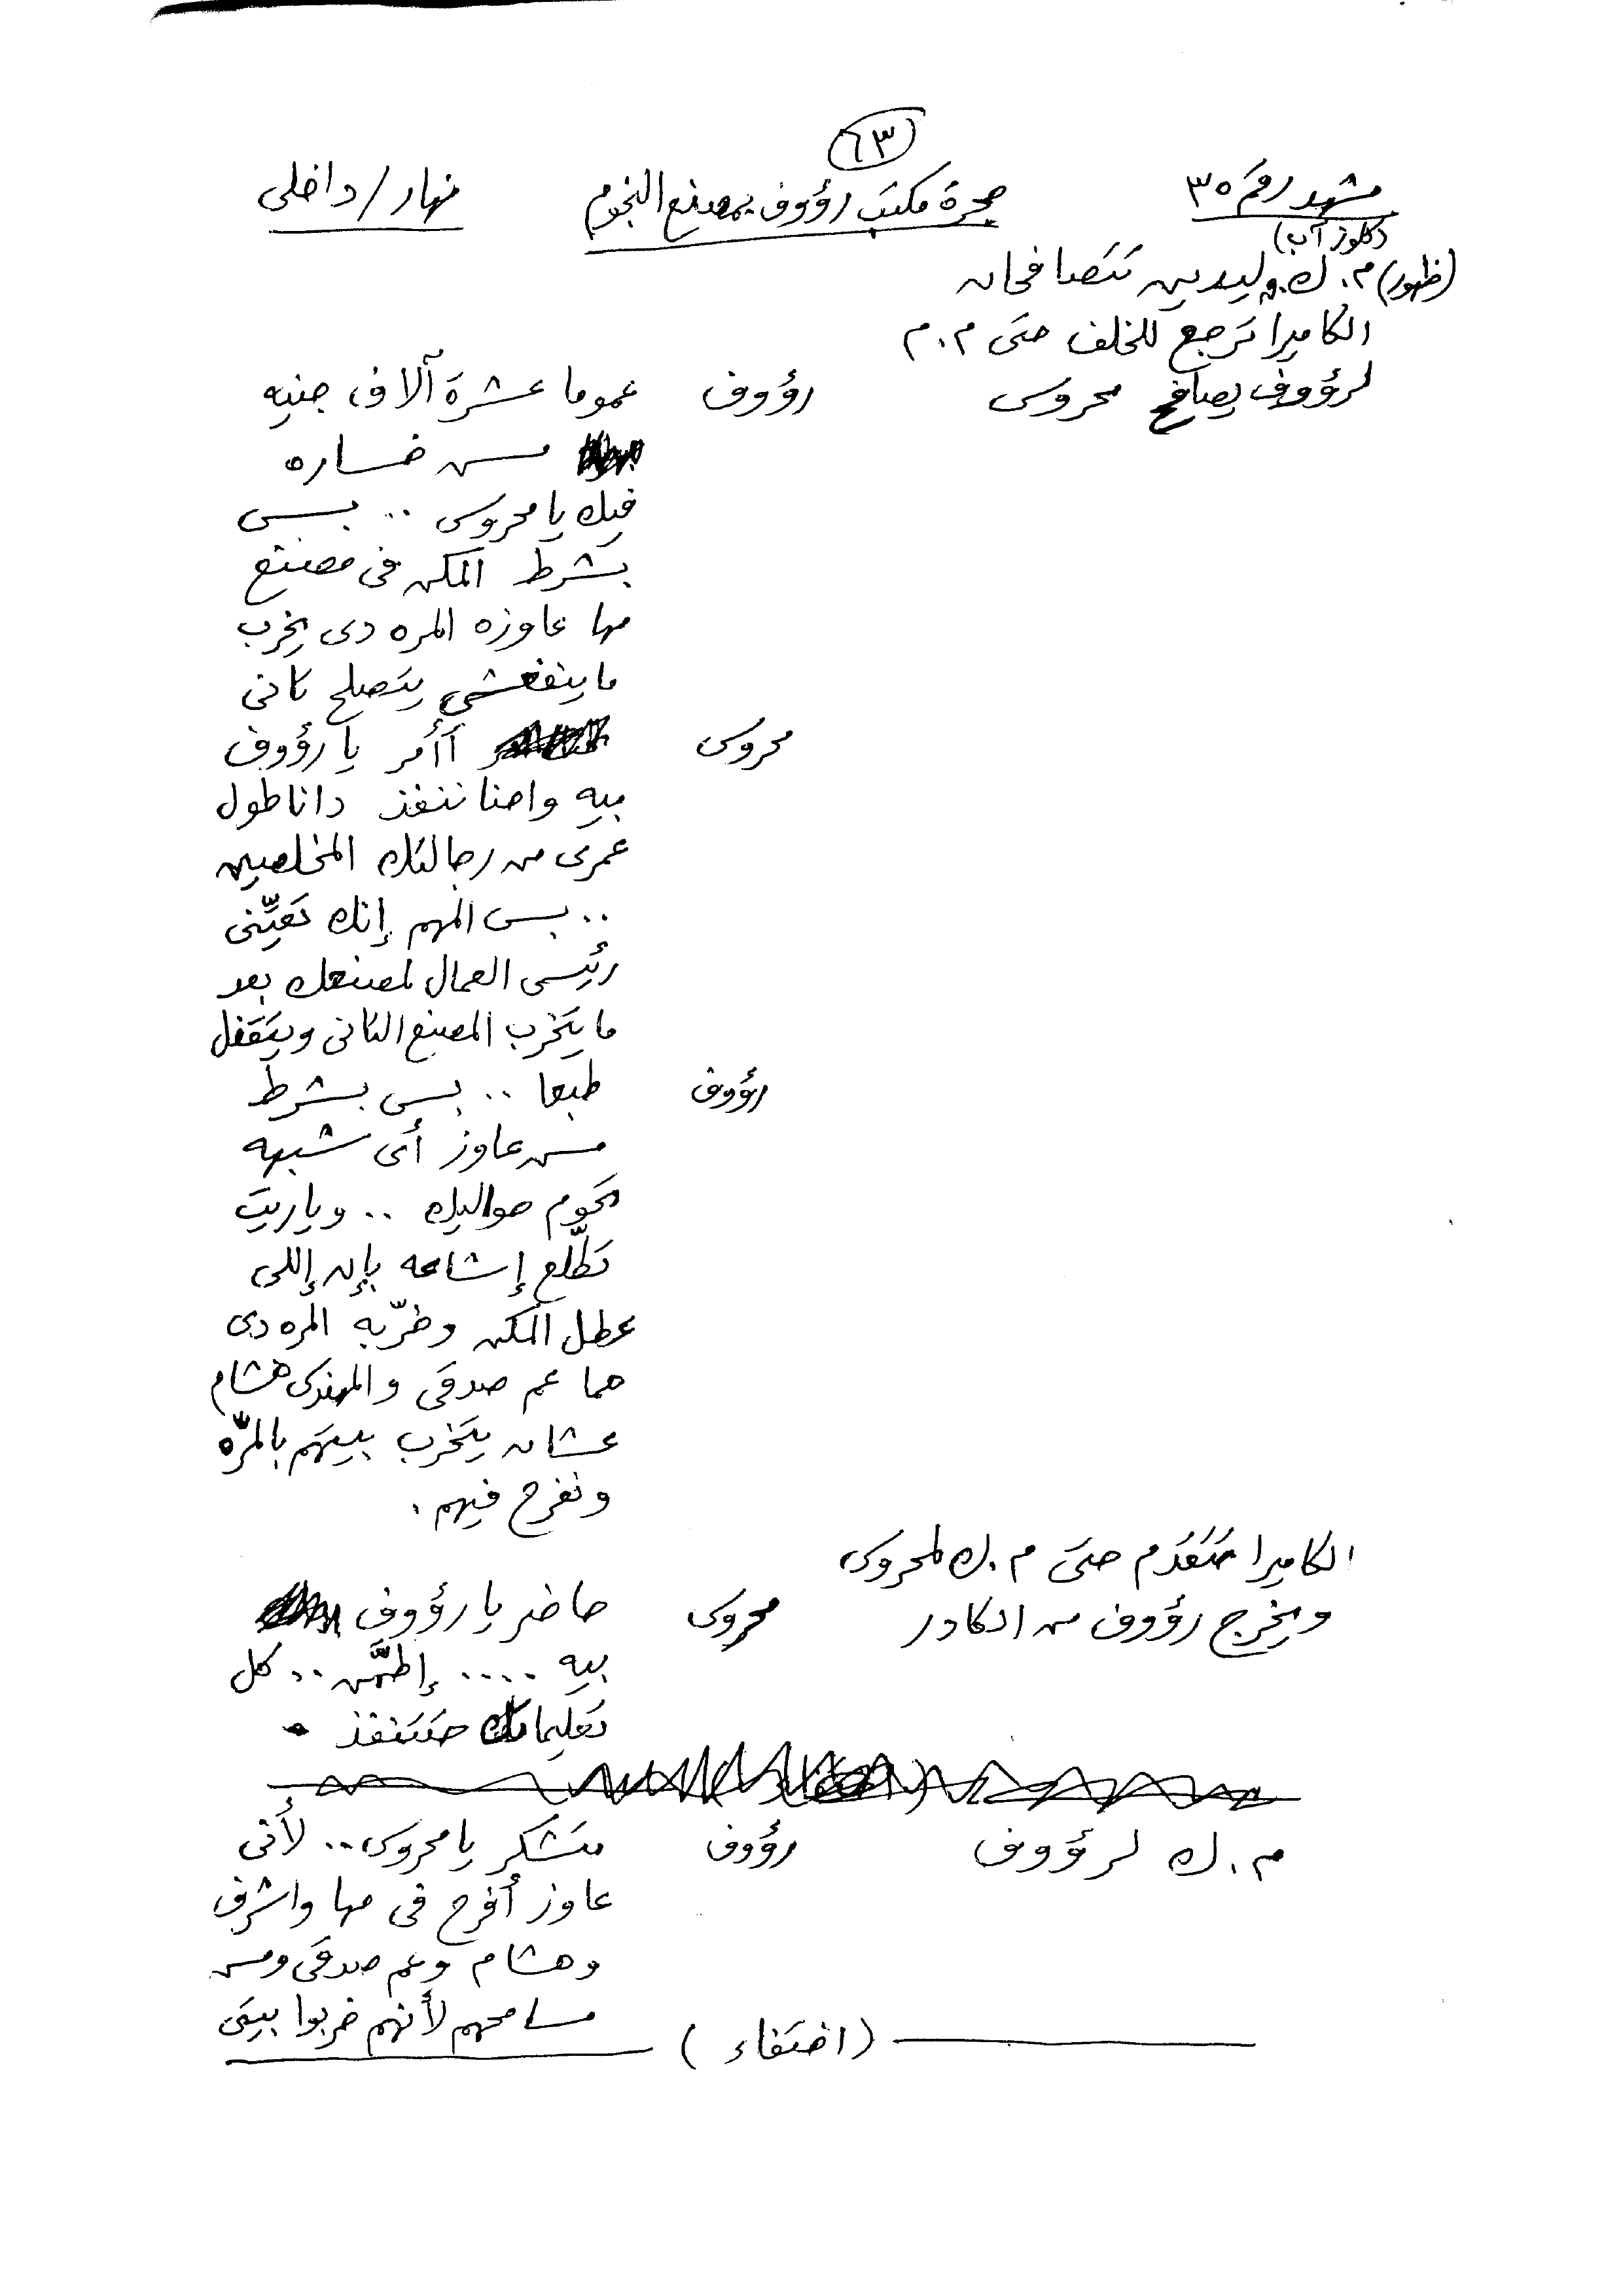 ٦٣
مشهد رقم ٣٥ حجرة مكتب رؤوف بمصنع النجوم نهار/داخلى
(كلوز آب)
(ظهور) م. ك. ليدين تتصافحان
الكاميرا ترجع للخلف حتى م. م
لرؤوف يصافح محروس رؤوف عموما عشرة آلاف جنيه
مش خساره
فيك يا محروس .. بس
بشرط المكن فى مصنع
مها عاوزه المره دى يخرب
ماينفعش يتصلح تانى
محروس أأمر يا رؤوف
بيه واحنا ننفذ دانا طول
عمرى من رجالتك المخلصين
.. بس المهم إنك تعيِّنى
رئيس العمال لمصنعك بعد
ما يتخرب المصنع التانى ويتقفل
رؤوف طبعا .. بس بشرط
مش عاوز أى شبهه
تحوم حواليك .. وياريت
تطلّع إشاعه بإن إللى
عطل المكن وخرّبه المره دى
هما عم صدقى والمهندس هشام
عشان يتخرب بيتهم بالمرّه
ونفرح فيهم .
الكاميرا تتقدم حتى م. ك لمحروس
ويخرج رؤوف من الكادر محروس حاضر يا رؤوف
بيه .... إطمّن .. كل
تعليماتك حتتنفذ .
م. ك لرؤوف رؤوف متشكر يا محروس .. لأنى
عاوز أفرح فى مها واشرف
وهشام وعم صدقى ومش
مسامحهم لأنهم خربوا بيتى
(اختفاء)